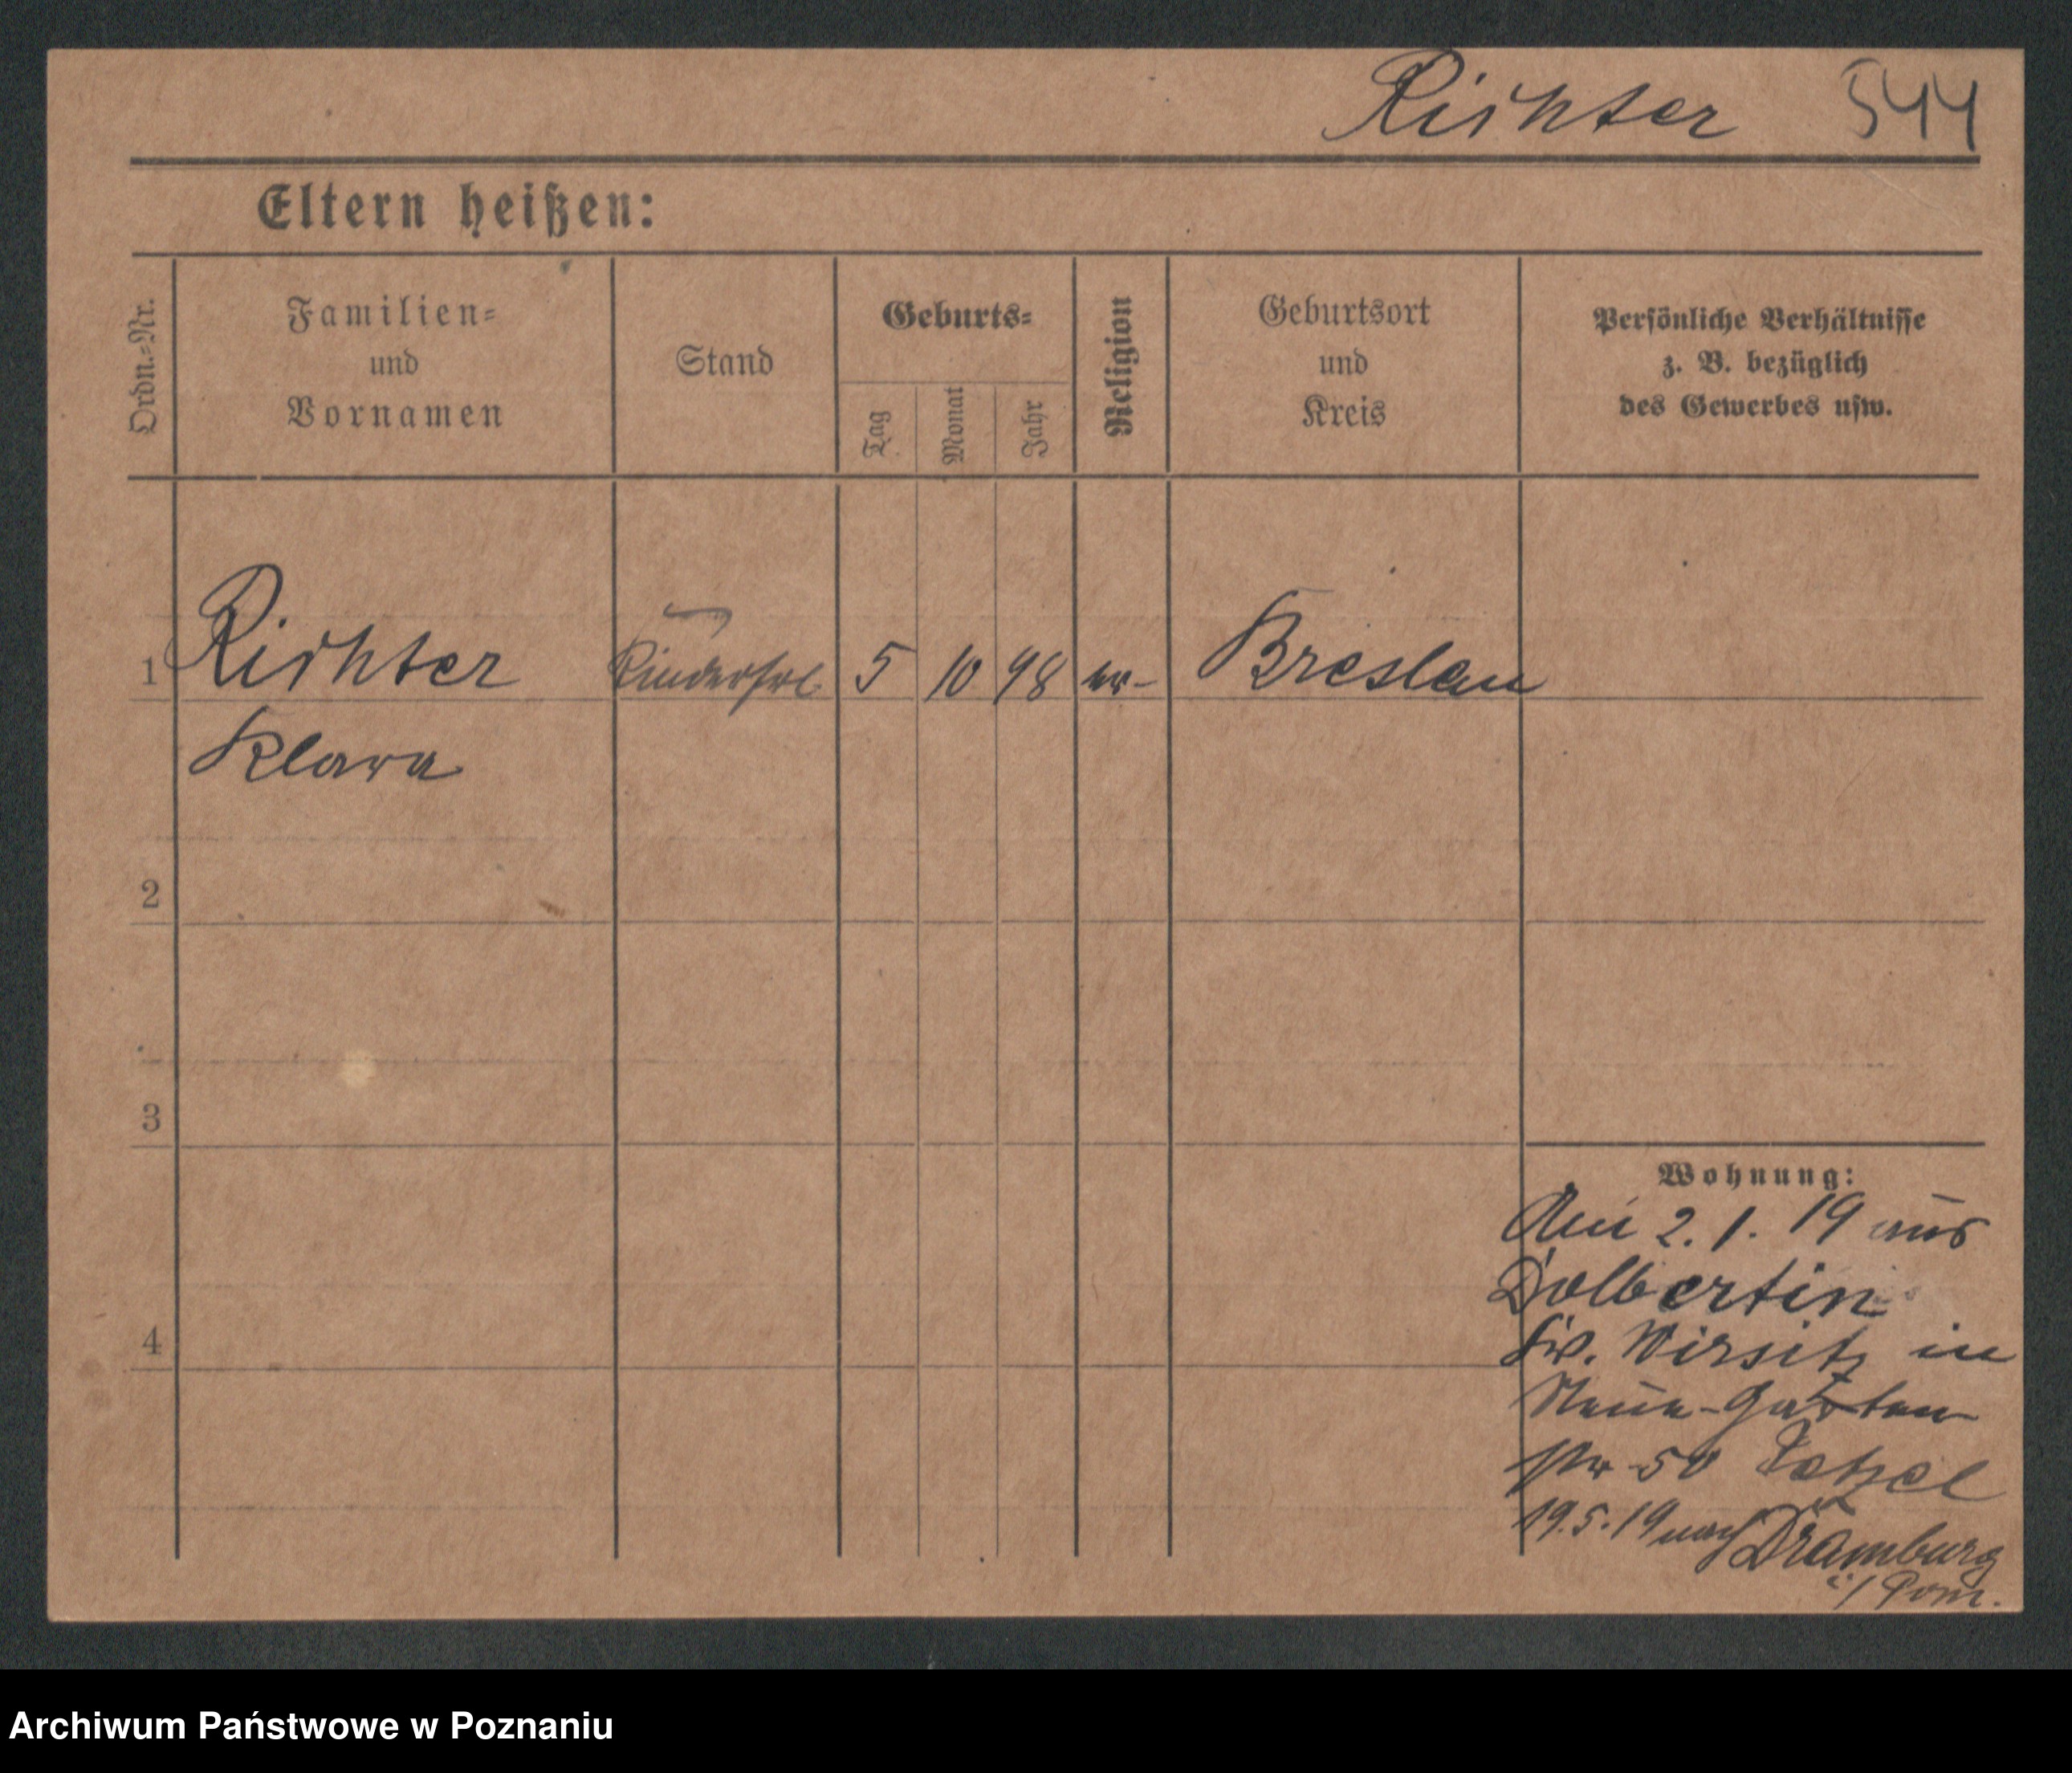 Richter 544
Eltern heißen:
Ordn.-Nr.
Familien- und Vornamen
Stand
Geburts-
Tag
Monat
Jahr
Religion
Geburtsort und Kreis
Persönliche Verhältnisse z. B. bezüglich des Gewerbes usw.
1 Richter Kinderfrl 5 10 98 ev- Breslau
Klara
2
3
4
Wohnung:
Am 2. 1. 19 aus
Dolbertin
Kr. Wirsitz in
Neue-Garten
50
19.5.19 nach Dramburg
i/Pom.
Archiwum Państwowe w Poznaniu